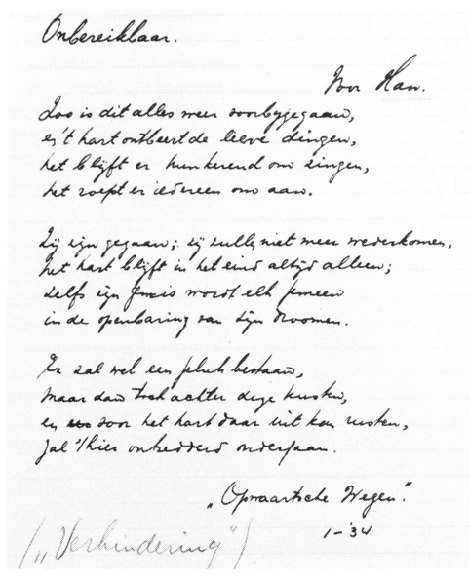 Onbereikbaar.
Voor Han.
Zoo is dit alles weer voorbijgegaan,
en 't hart ontbeert de lieve dingen,
het blijft er hunkerend om zingen,
het roept er iedereen om aan.
Zij zijn gegaan; zij zullen niet meer wederkomen,
het hart blijft in het eind altijd alleen;
zelfs zijn gemis wordt elk gemeen
in de openbaring van zijn droomen.
Er zal wel een plek bestaan,
maar dan toch achter deze kusten,
en voor het hart daar uit kan rusten,
zal 't hier ontredderd ondergaan.
„Opwaartsche Wegen".
1-'34
(„Verhindering")